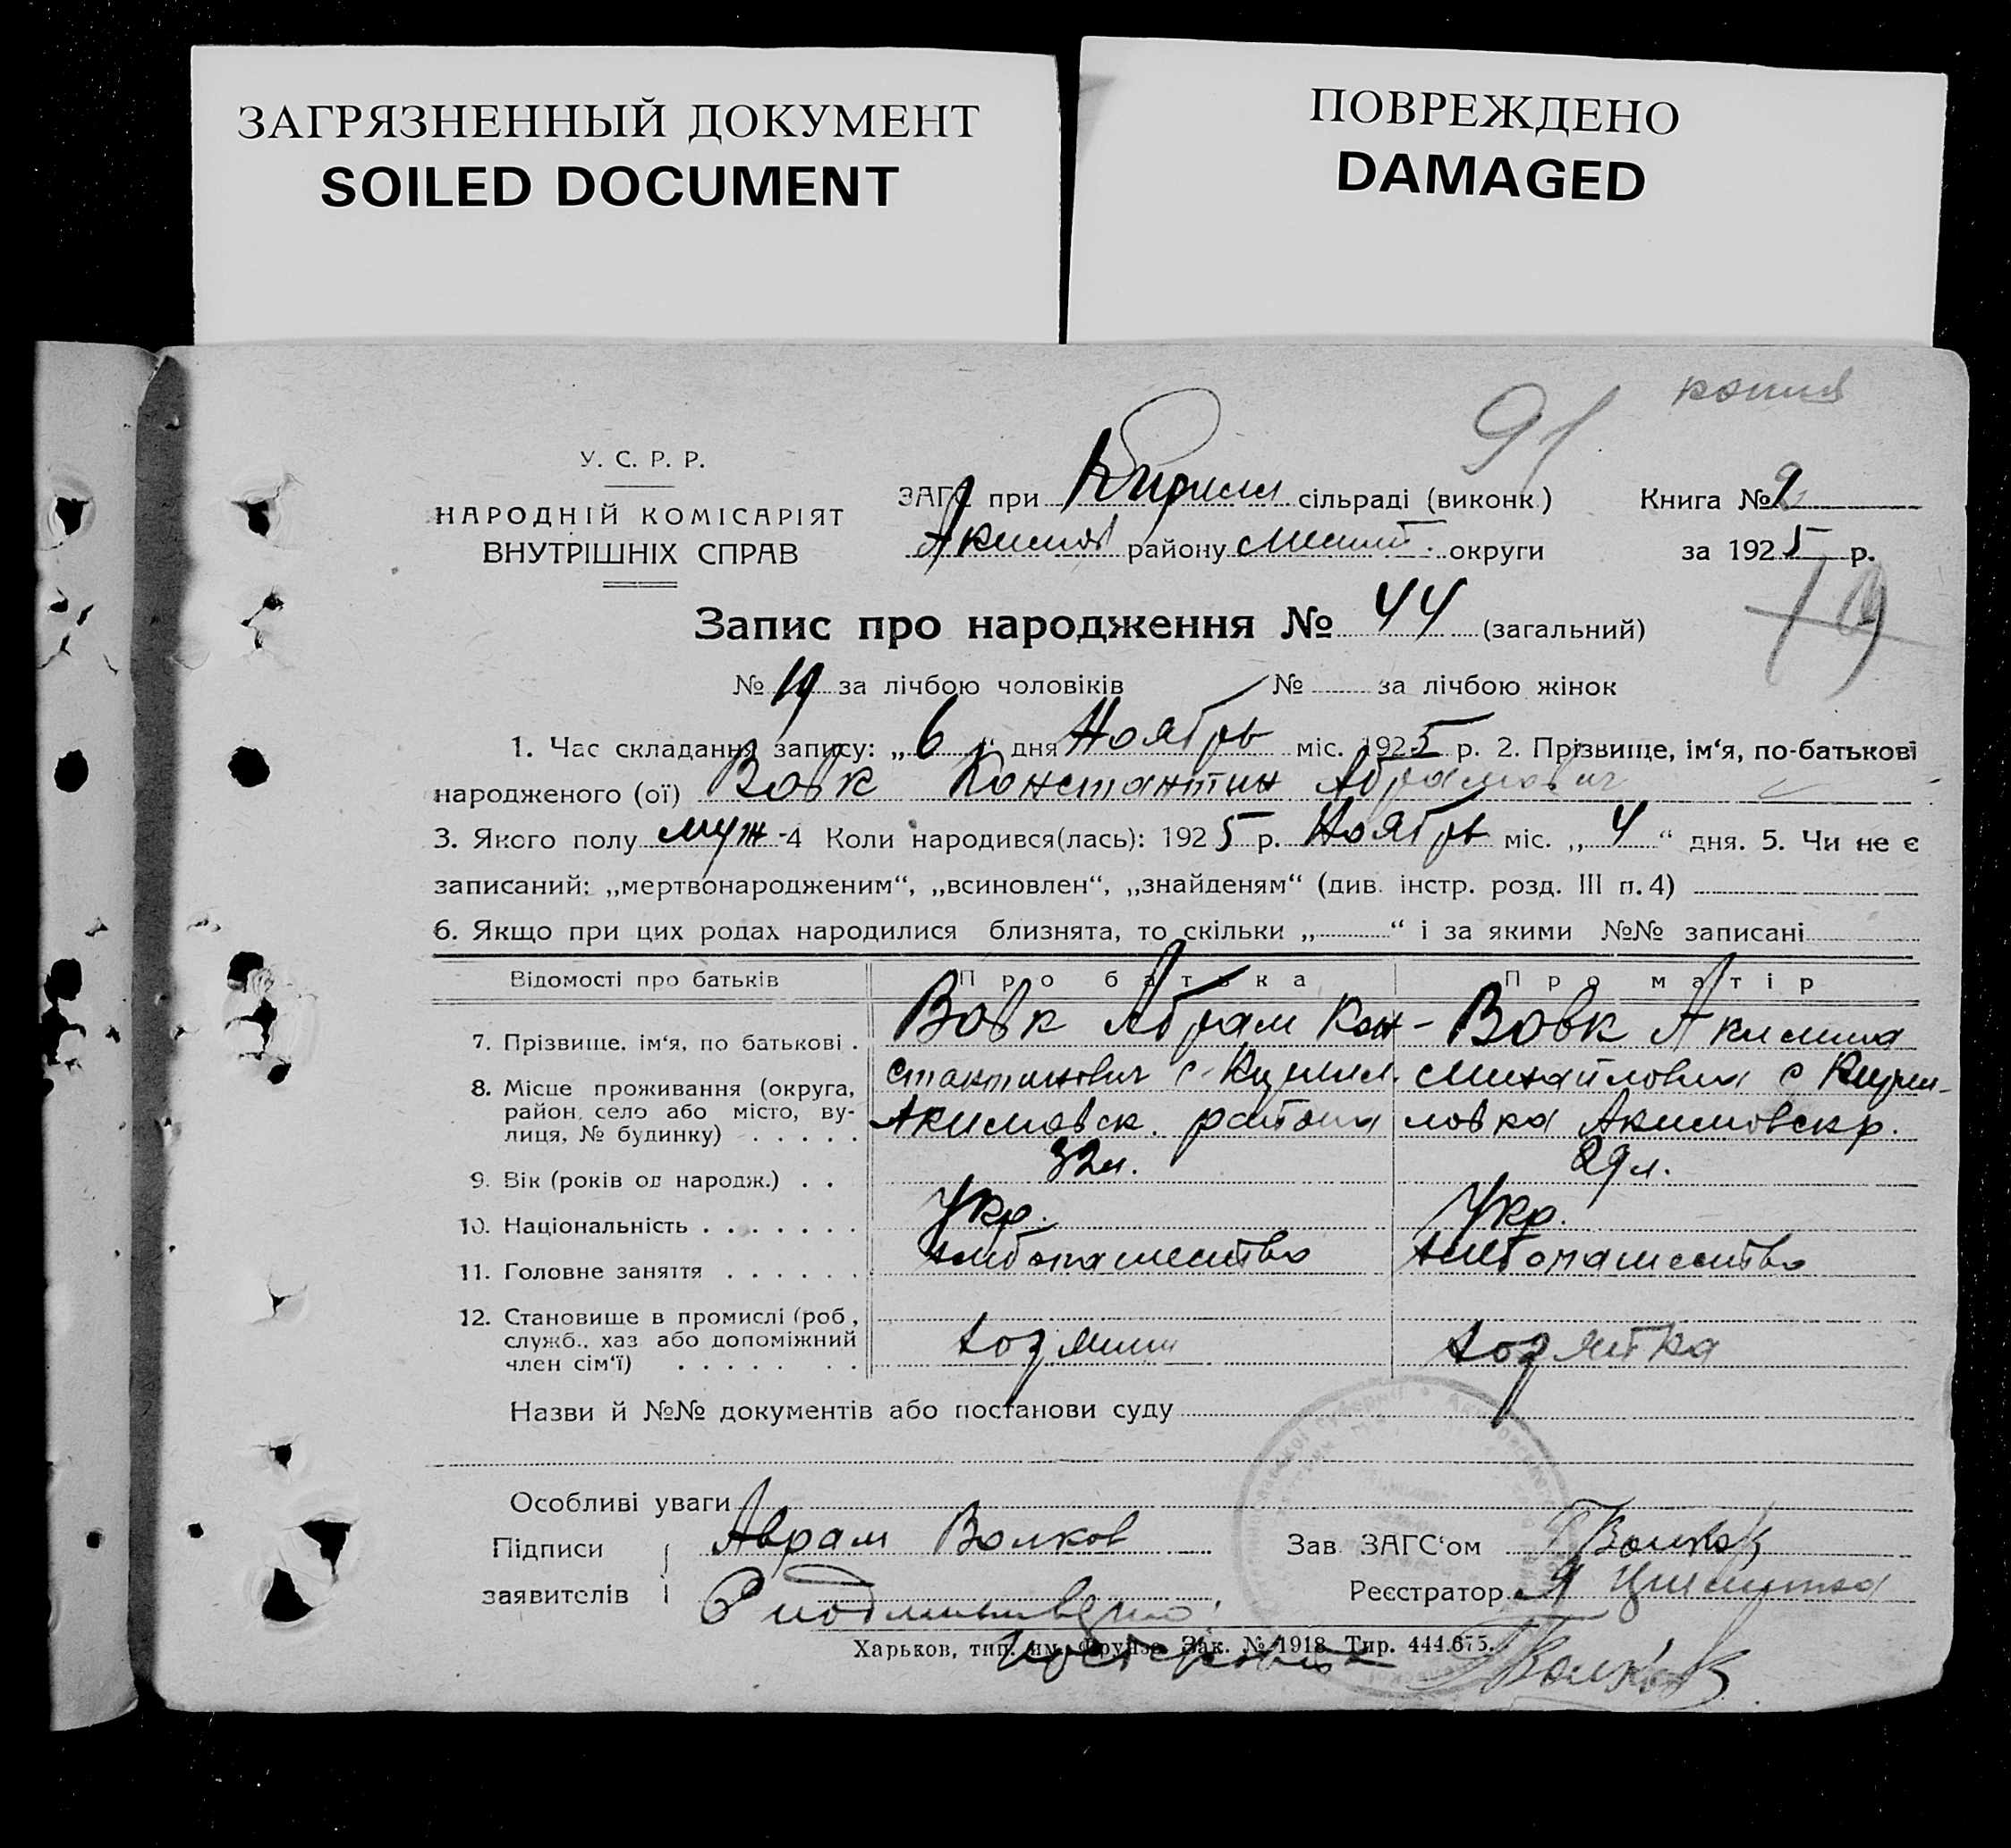 ЗАГРЯЗНЕННЫЙ ДОКУМЕНТ
SOILED DOCUMENT
ПОВРЕЖДЕНО
DAMAGED
копия
91
У. С. Р. Р.
НАРОДНІЙ КОМІСАРІЯТ
ВНУТРІШНІХ СПРАВ
ЗАГС при Кирил сільраді (виконк.)
Акимов району Мелит. округи
Книга № 2
за 1925 р.
Запис про народження № 44 (загальний)
№ 19 за лічбою чоловіків № за лічбою жінок
1. Час складання запису: „6“ дня Ноябрь міс. 1925 р. 2. Прізвище, ім‘я, по-батькові
народженого (ої) Вовк Константин Абрамович
3. Якого полу муж 4 Коли народився(лась): 1925 р. Ноябрь міс. „4“ дня. 5. Чи не є
записаний: „мертвонародженим“, „всиновлен“, „знайденям“ (див. інстр. розд. III п. 4)
6. Якщо при цих родах народилися близнята, то скільки „ “ і за якими №№ записані
Відомості про батьків Про батька Про матір
7. Прізвище, ім‘я, по батькові . Вовк Абрам Кон- Вовк Акилина
8. Місце проживання (округа, стантинович с. Михайловна с
район, село або місто, ву- Акимовск. района ловка Акимовск р.
лиця, № будинку) . . . . .
9. Вік (років од народж.) . . 32 л. 29 л.
10. Національність . . . . . . . Укр. Укр.
11. Головне заняття . . . . . . хлебопашество хлебопашество
12. Становище в промислі (роб.,
служб., хаз або допоміжний хозяин хозяйка
член сім‘ї) . . . . . . .
Назви й №№ документів або постанови суду
Особливі уваги
Підписи Аврам Волков Зав ЗАГС‘ом Волков
заявителів С подлинным верно: Реєстратор
Харьков, тип. им. Фрунзе. Зак. № 1918. Тир. 444.675.
Волков